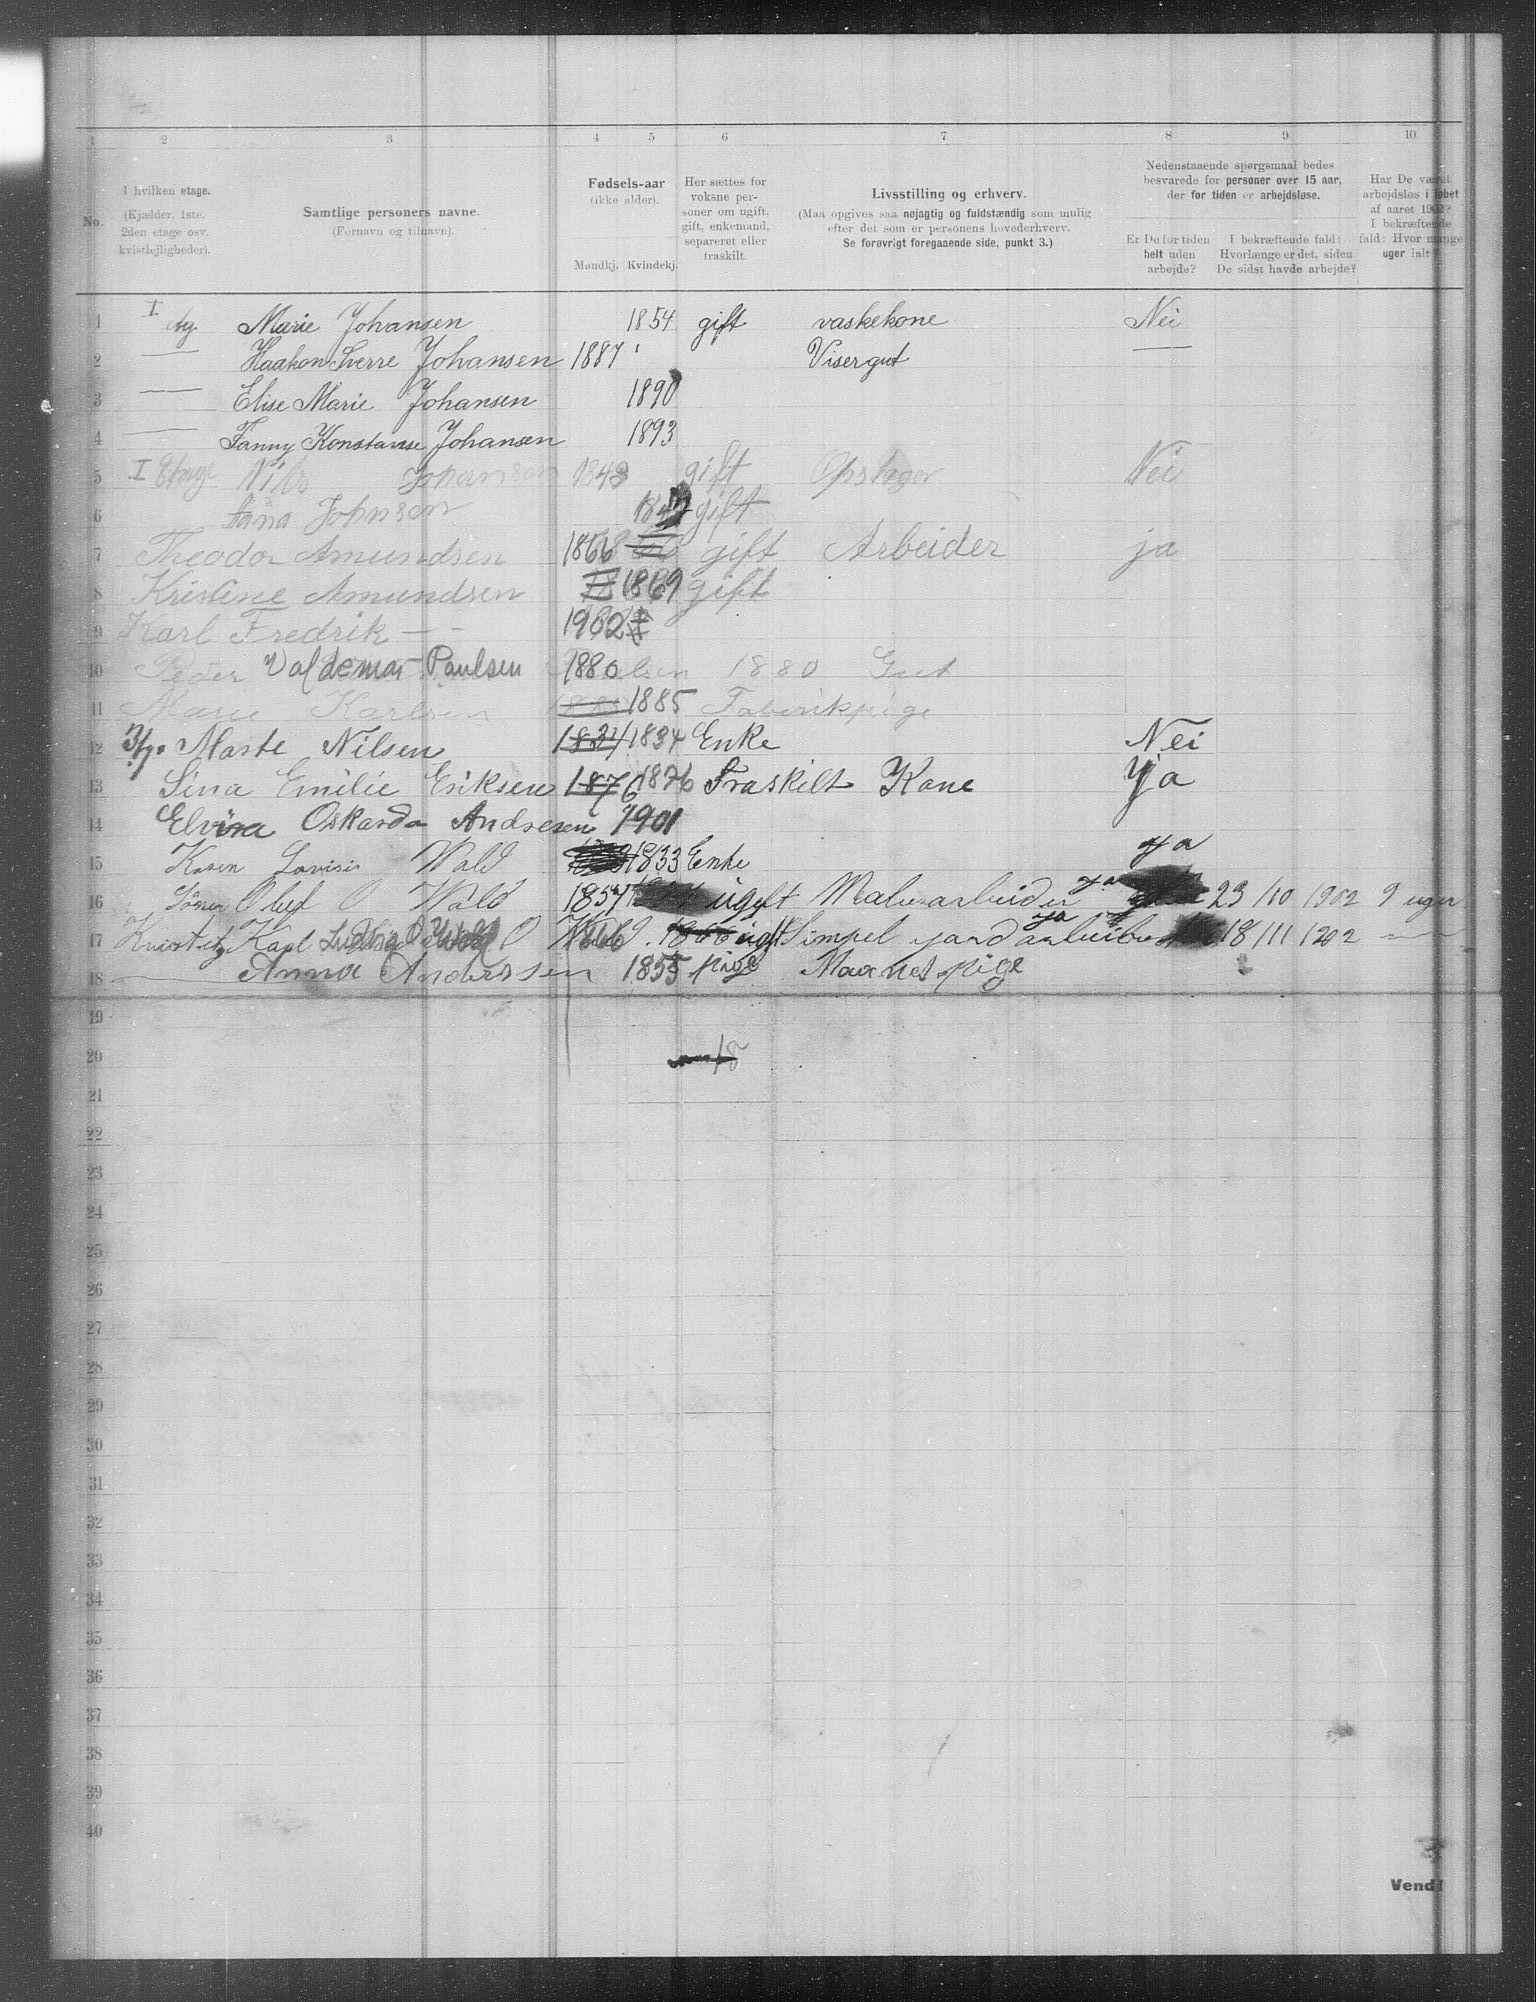 1 2 3 4 5 6 7 8 9 10
No.
I hvilken etage.
(Kjælder, 1ste.
2den etage osv.
kvistlejligheder).
Samtlige personers navne.
(Fornavn og tilnavn).
Fødsels-aar
(ikke alder).
Mandkj. Kvindekj.
Her sættes for
voksne per-
soner om ugift,
gift, enkemand,
separeret eller
fraskilt.
Livsstilling og erhverv.
(Maa opgives saa nøjagtig og fuldstændig som mulig
efter det som er personens hovederhverv.
Se forøvrigt foregaaende side, punkt 3.)
Nedenstaaende spørgsmaal bedes
besvarede for personer over 15 aar,
der for tiden er arbejdsløse.
Er De for tiden
helt uden
arbejde?
I bekræftende fald:
Hvorlænge er det, siden
De sidst havde arbejde?
Har De været
arbejdsløs i løbet
af aaret 1902?
I bekræftende
fald: Hvor mange
uger ialt?
1 I etg Marie Johansen 1854 gift vaskekone Nei
2 — Haakon Sverre Johansen 1887 Visergut —
3 — Elise Marie Johansen 1890
4 — Fanny Konstanse Johansen 1893
5 I Etage Nils Johanson 1843 gift Opslager Nei
6 Johnsen gift
7 Theodor Amundsen 1866 gift Arbeider ja
8 Kristine Amundsen 1869 gift
9 Karl Fredrik — - 1902
10 Peder Valdemar Paulsen 1880 1880 Gut
11 Marie Karlsen 1885 Fabrikpige
12 Marte Nilsen 1834 1834 Enke Nei
13 Lina Emilie Eriksen 1876 1876 Fraskilt Kone Ja
14 Elvira Oskarda Andresen 1901
15 Karen Lovisie Wold 1833 Enke ja
16 Oluf O Wold 1857 ugift ja 23/10 1902 9 uger
17 Kvistetg Karl O 1866 1866 ugift Simpel ja 18/11 1902 —
18 — Anna Anderssen 1855 pige
19
20 18
21
22
23
24
25
26
27
28
29
30
31
32
33
34
35
36
37
38
39
40
Vend!